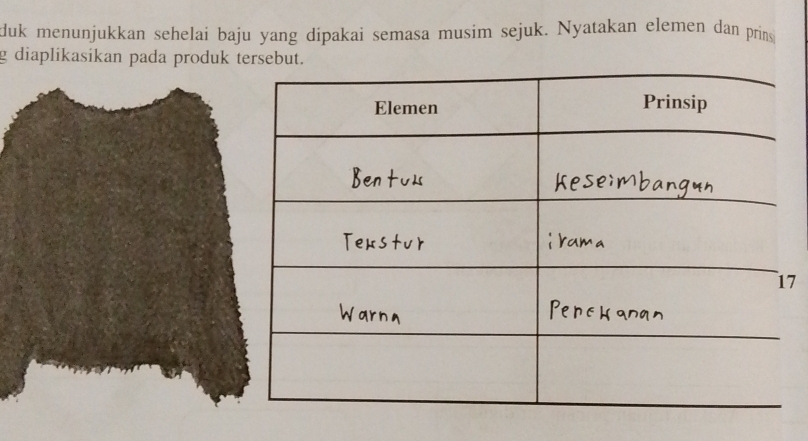 duk menunjukkan sehelai baju yang dipakai semasa musim sejuk. Nyatakan elemen dan prins
g diaplikasikan pada produk tersebut.
Elemen Prinsip
Bentuk Keseimbangan
Tekstur irama
17
Warna Penekanan